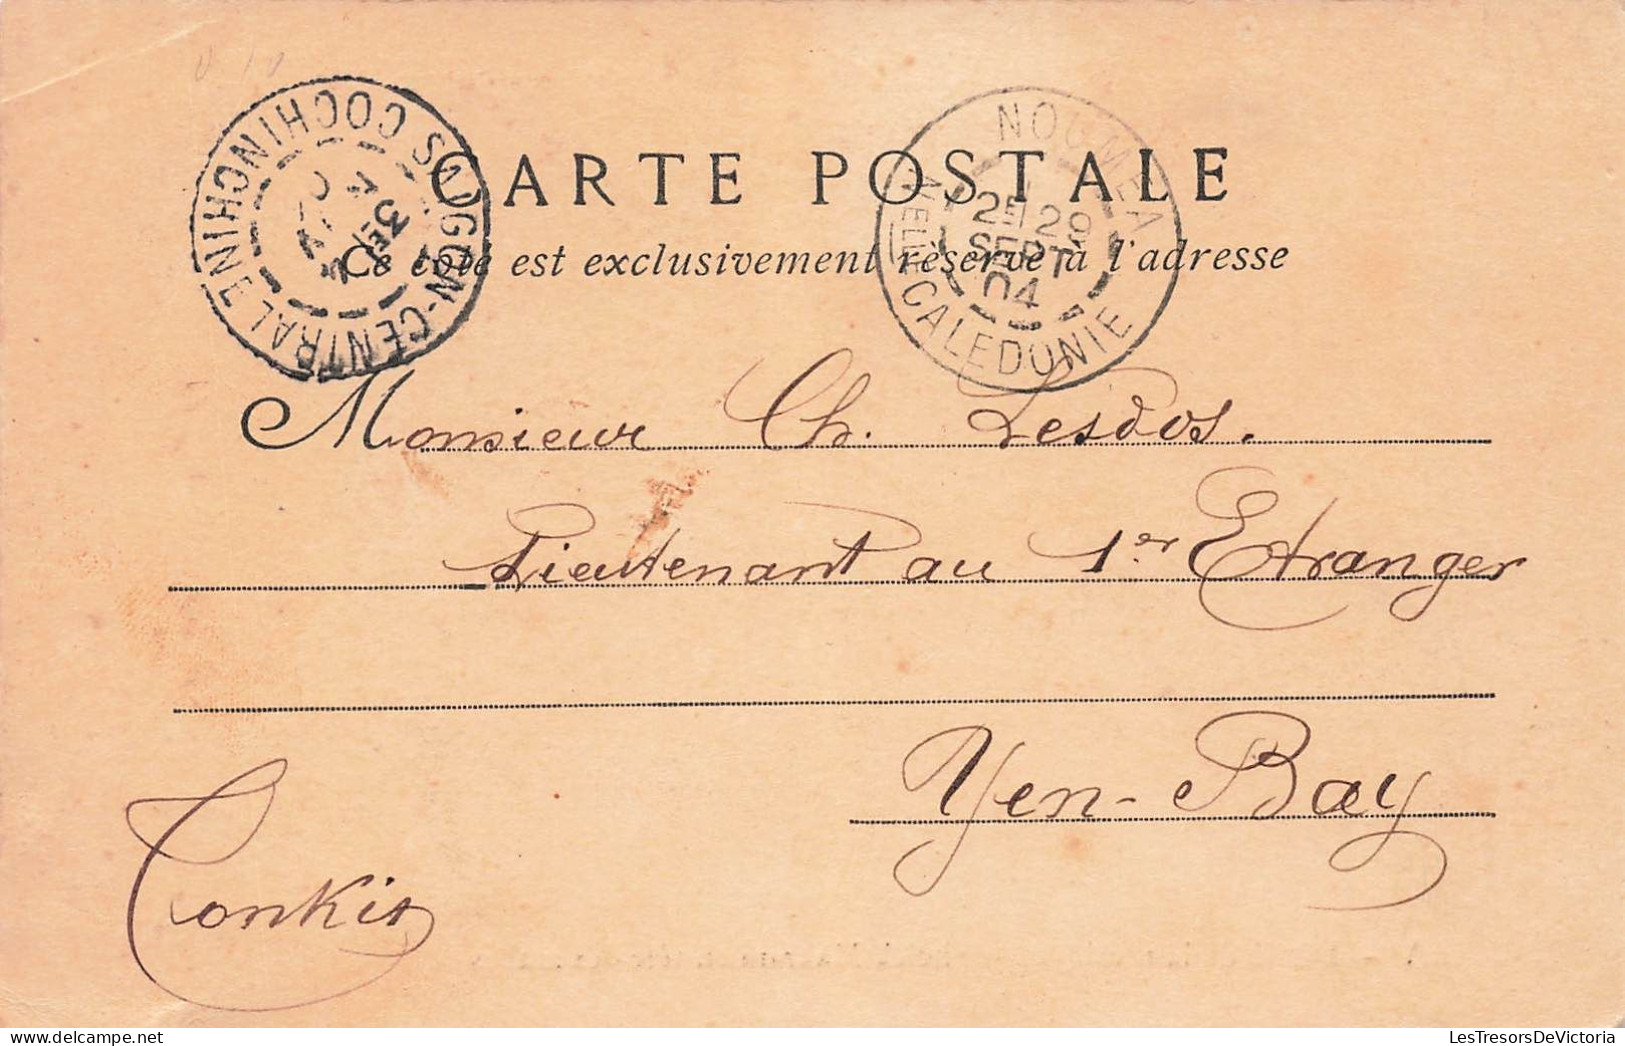 CARTE POSTALE
Ce côté est exclusivement réservé à l'adresse
SAIGON-CENTRAL COCHINCHINE
3E
NOUMEA
2E 29
SEPT
04
NELLE CALEDONIE
Monsieur Ch. Lesdos.
Lieutenant au 1er Etranger
Yen-Bay
Tonkin
LesTresorsDeVictoria.com